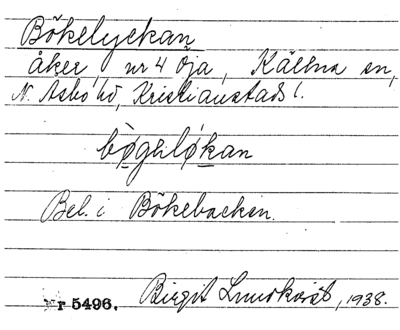 Bökelyckan
åker, nr 4 Öja, Källna sn,
N. Åsbo hd, Kristianstads l.
bø̀gəlø̜kan
Bel. i Bökebacken.
Nr 5496. Birgit Lundkvist, 1938.